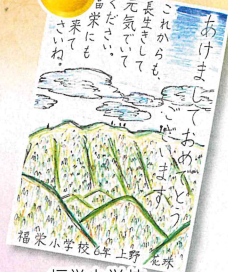 あけましておめでとう
ございます
これからも、
長生きして
元気でいて
ください。
福栄にも
来て
さいね。
福栄小学校6年上野